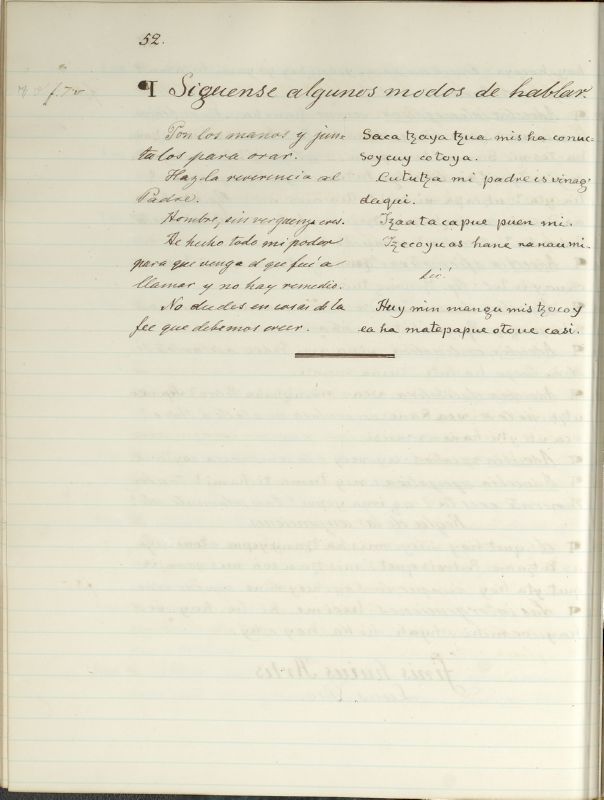 52.
¶ Siguense algunos modos de hablar.
Pon las manos y jun- Saca tzaya tzua mis ha conuc-
talas para orar. soy cuy cotoya.
Haz la reverencia al Cututza mi padre is vinag
Padre. daqui.
Hombre, sin verguenza eres. Tzaatacapue puen mi.
He hecho todo mi poder Tzecoyuas hane nanaumi.
para que venga el que fué a
llamar y no hay remedio. sic!
No dudes en cosas de la Huy min mangu mis tzocoy
fee que debemos creer. ea ha matepapue otoue casi.